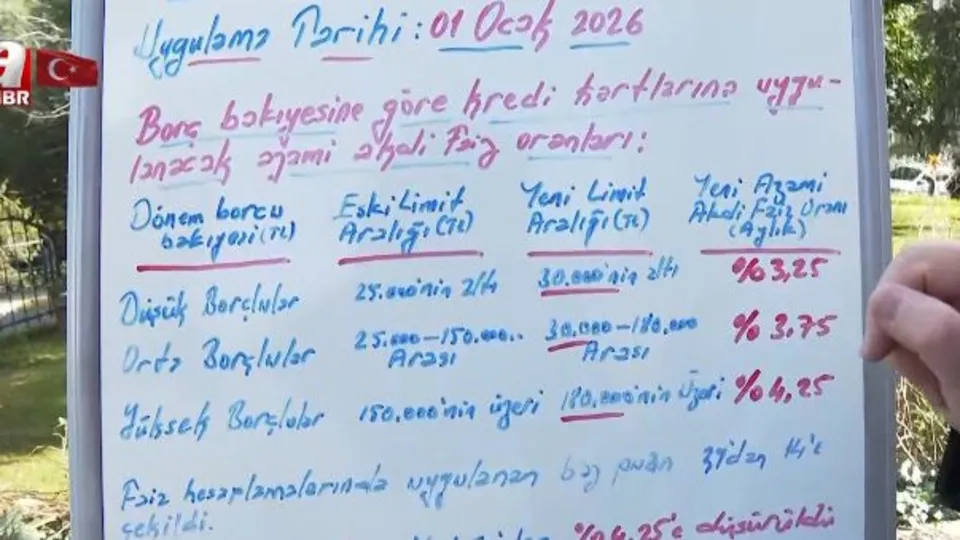 a
HBR
Uygulama Tarihi: 01 Ocak 2026
Borç bakiyesine göre kredi kartlarına uygu-
lanacak azami akdi Faiz oranları:
Dönem borcu bakiyesi (TL) Eski Limit Aralığı (TL) Yeni Limit Aralığı (TL) Yeni Azami Akdi Faiz Oranı (Aylık)
Düşük Borçlular 25.000'nin altı 30.000'nin altı %3,25
Orta Borçlular 25.000-150.000.. Arası 30.000-180.000 Arası %3.75
Yüksek Borçlular 150.000'nin üzeri 180.000'nin Üzeri %4,25
Faiz hesaplamalarında uygulanan baz puan
çekildi.
%4,25'e düşürüldü